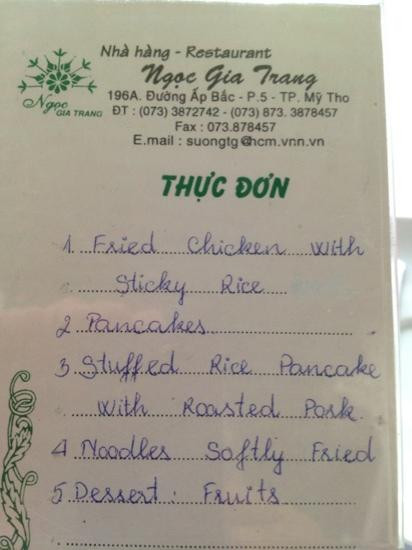 Nhà hàng - Restaurant
Ngọc Gia Trang
196A. Đường Ấp Bắc - P.5 - TP. Mỹ Tho
ĐT : (073) 3872742 - (073) 873. 3878457
Fax : 073.878457
E.mail : suongtg@hcm.vnn.vn
Ngọc
GIA TRANG
THỰC ĐƠN
1. Fried Chicken With
Sticky Rice
2 Pancakes
3. Stuffed Rice Pancake
With Roasted Pork.
4 Noodles Softly Fried
5. Dessert : Fruits